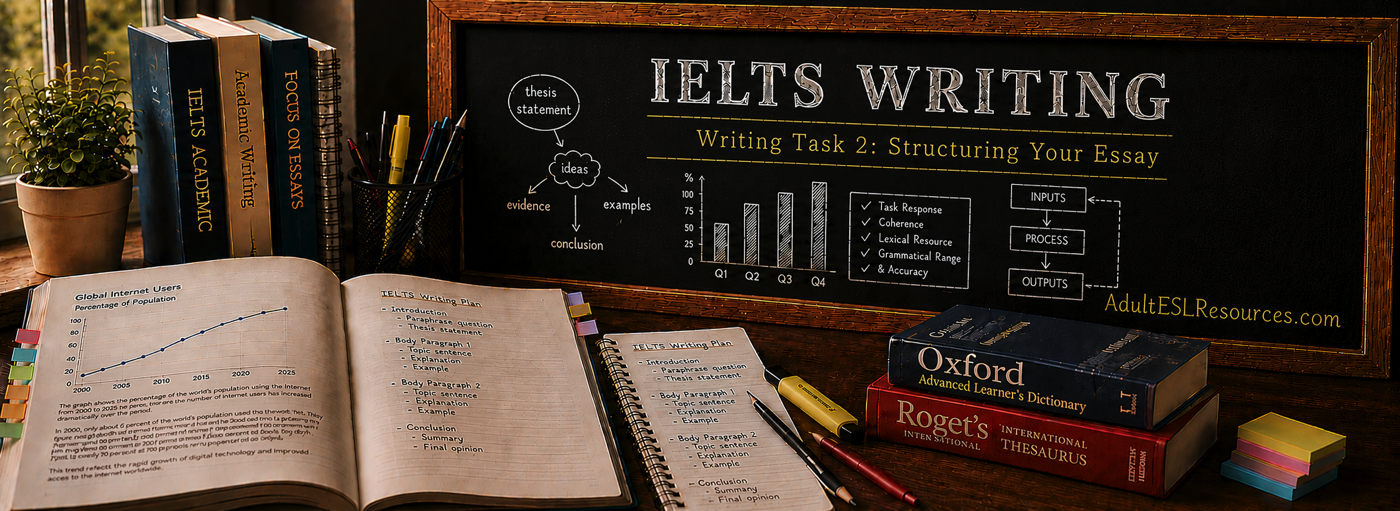 IELTS WRITING
Writing Task 2: Structuring Your Essay
thesis
statement
ideas
evidence
examples
conclusion
%
100
75
50
25
0
Q1 Q2 Q3 Q4
✓ Task Response
✓ Coherence
✓ Lexical Resource
✓ Grammatical Range
✓ & Accuracy
INPUTS
PROCESS
OUTPUTS
AdultESLResources.com
IELTS ACADEMIC
Academic Writing
FOCUS ON ESSAYS
Global Internet Users
Percentage of Population
100
80
60
40
20
0
2000 2005 2010 2015 2020 2025
The graph shows the percentage of the world's population using the Internet
from 2000 to 2025 the number of internet users has increased
dramatically over the period.
In 2000, only about 6 percent of the world's population used the
This trend reflect the rapid growth of digital technology and improved
access to the internet worldwide.
IELTS Writing Plan
- Introduction
- Paraphrase question
- Thesis statement
- Body Paragraph 1
- Topic sentence
- Explanation
- Example
- Body Paragraph 2
- Topic sentence
- Explanation
- Example
- Conclusion
- Summary
- Final opinion
IELTS Writing Plan
- Introduction
- Paraphrase question
- Thesis statement
- Body Paragraph 1
- Topic sentence
- Explanation
- Example
- Body Paragraph 2
- Topic sentence
- Explanation
- Example
- Conclusion
- Summary
- Final opinion
Oxford
Advanced Learner's Dictionary
Roget's
INTERNATIONAL
THESAURUS